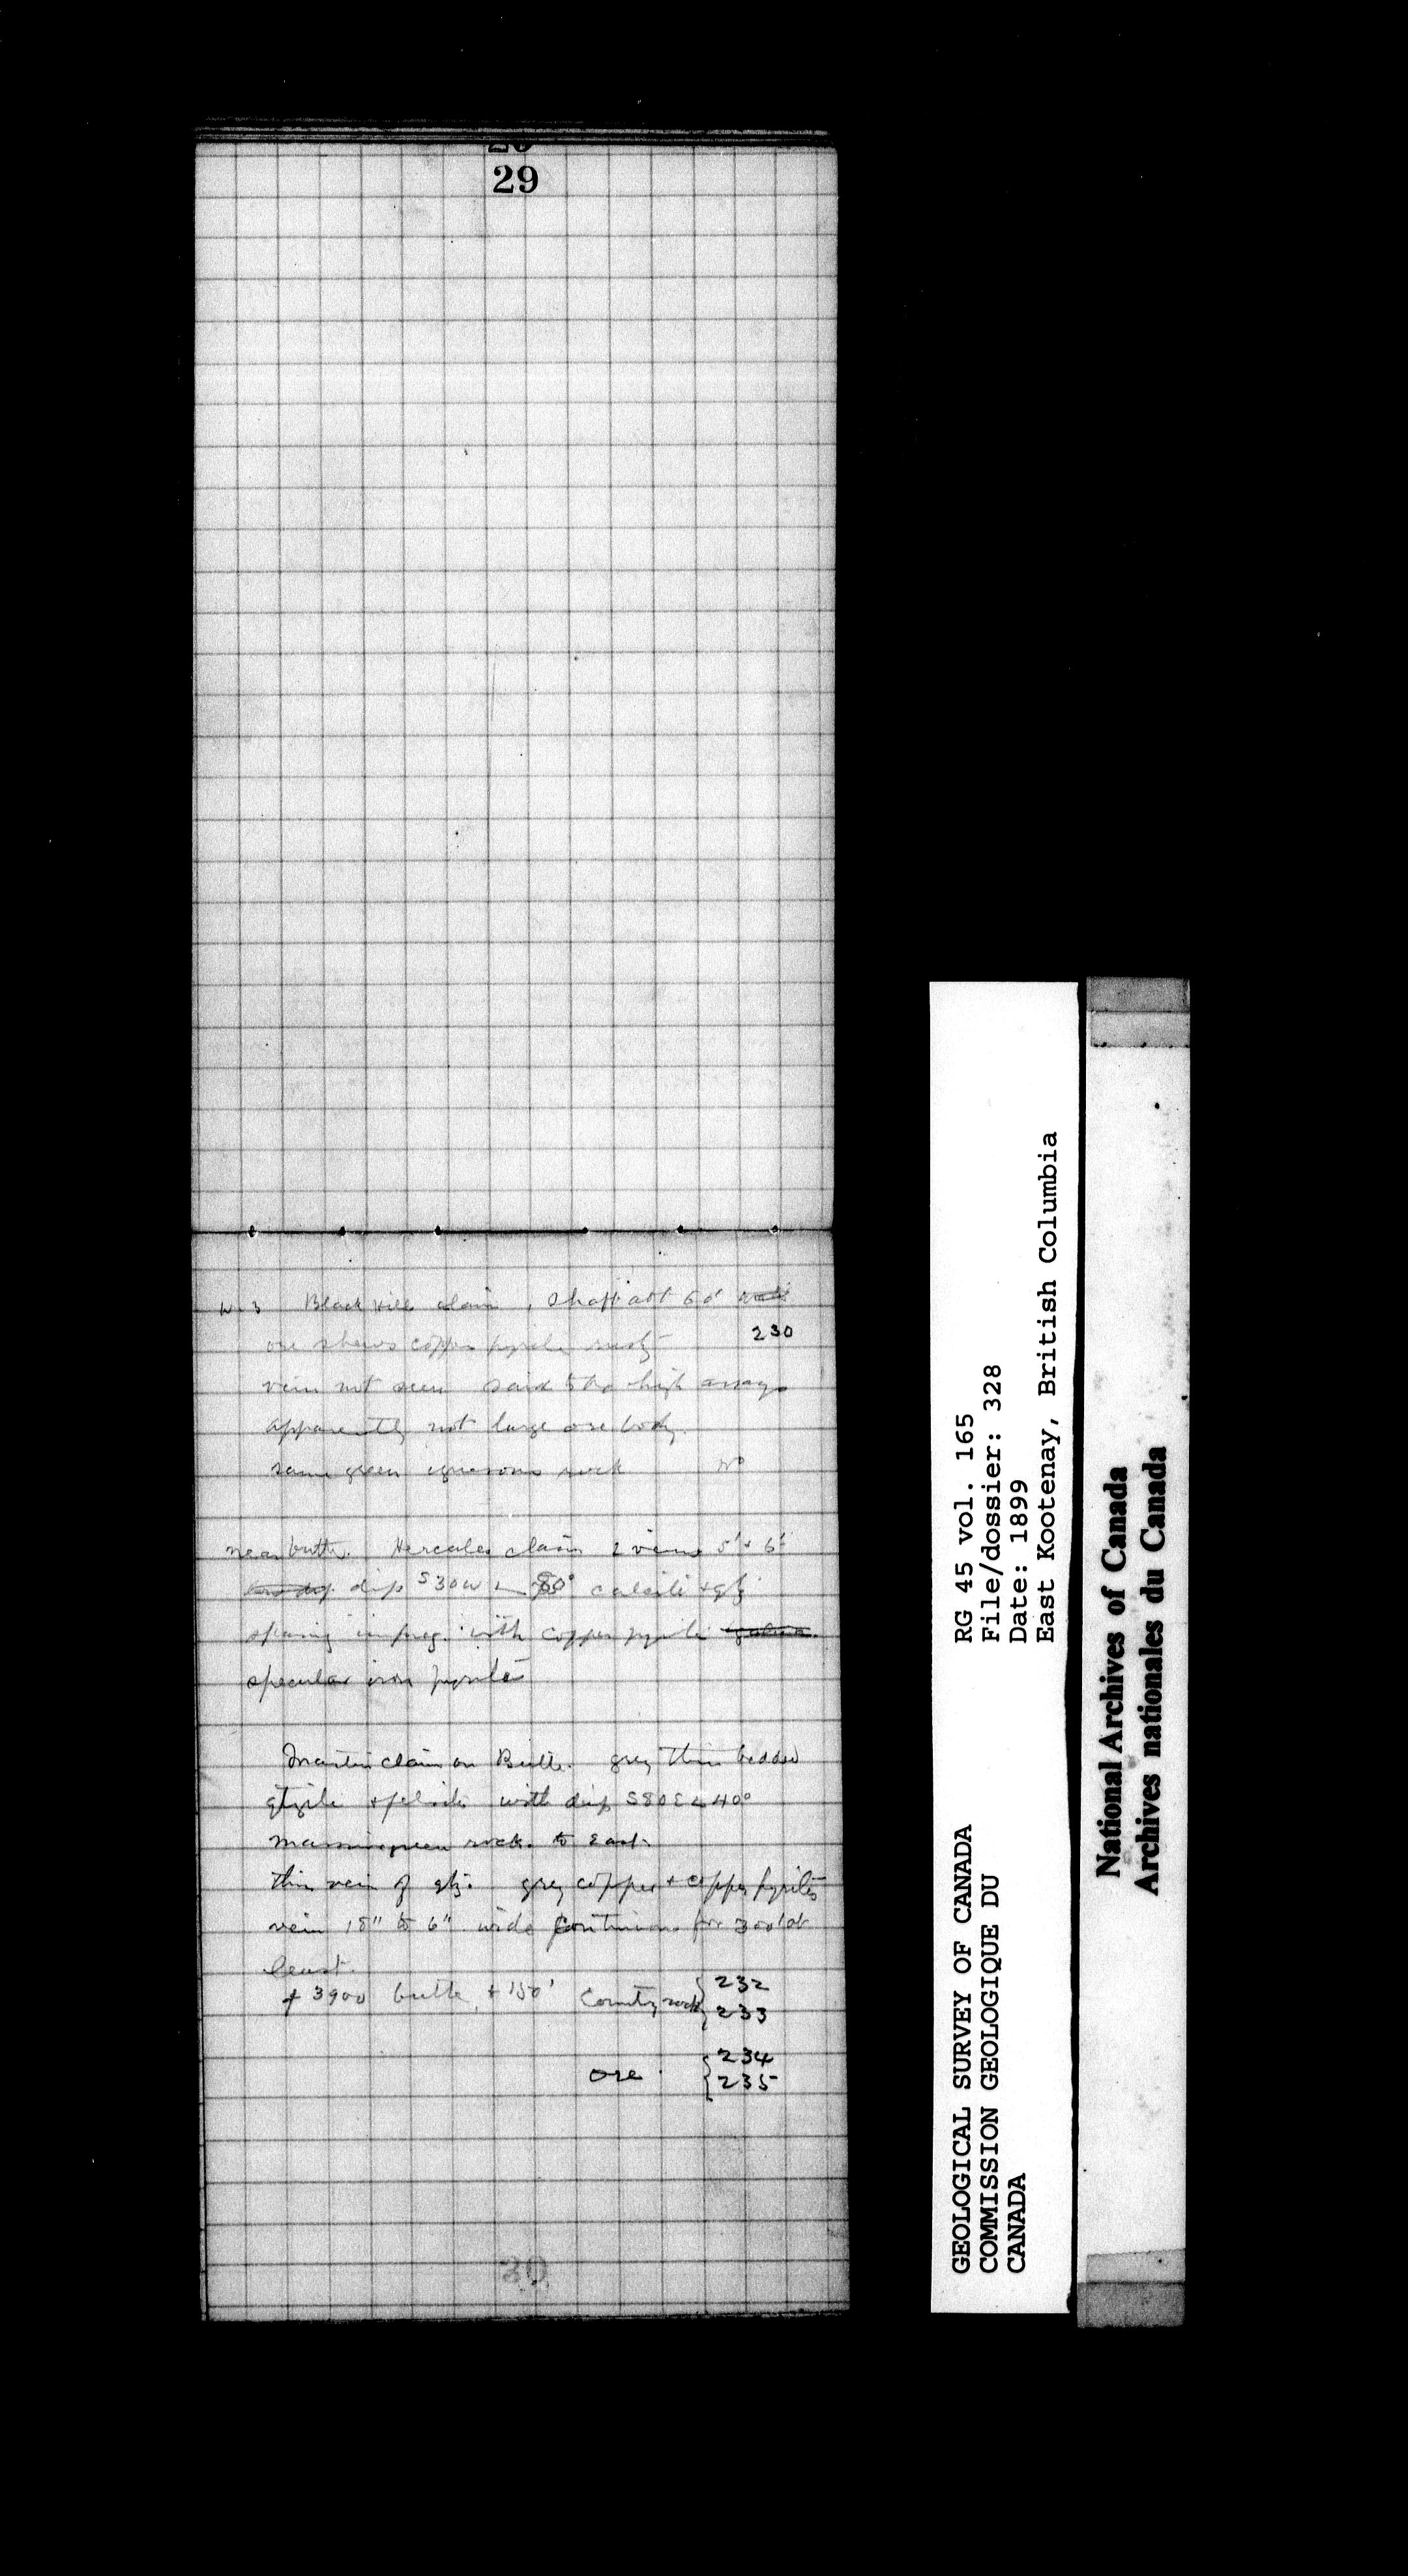 29
W. 3 Black Hill claim, shaft abt 60'
ore shews copper pyrite rusty 230
vein not seen said to be high assays
apparently not large ore body.
same green igneous rock No
near butte. Hercules claim 2 veins 5' & 6'
dip S30W ∠ 80° calcite + qtz
sparing impreg. with copper pyrite galena
specular iron pyrites
Martin claim on Butte. grey thin bedded
qtzite + felsite with dip S80E ∠ 40°
massive green rock to East.
thin vein of qtz. grey copper + copper pyrites
vein 18" to 6" wide continuous for 300' at
least.
+ 3900 butte, + 150' Country rock { 232
233
ore { 234
235
30
GEOLOGICAL SURVEY OF CANADA
COMMISSION GEOLOGIQUE DU
CANADA
RG 45 vol. 165
File/dossier: 328
Date: 1899
East Kootenay, British Columbia
National Archives of Canada
Archives nationales du Canada